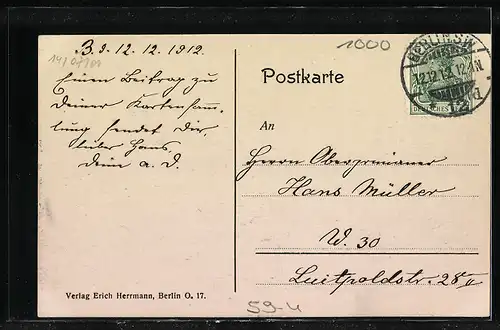 B. d. 12.12.1912.
Einen Beitrag zu
Deiner Kartensamm-
lung sendet Dir,
lieber Hans,
Dein a. D.
1000
Postkarte
BERLIN SW
12.12.12. 12-1N
DEUTSCHES
An
Herrn Oberprimaner
Hans Müller
W. 30
Luitpoldstr. 28 II
Verlag Erich Herrmann, Berlin O. 17.
59-4